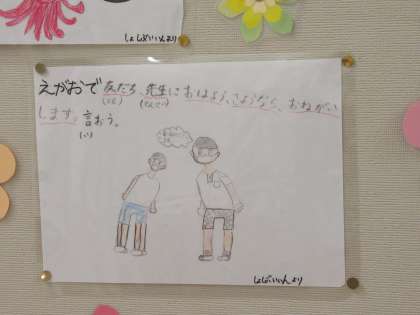 しょくいんより
えがおで友だち、先生におはよう、さようなら、おねがい
(とも) (せんせい)
します。言おう。
(い)